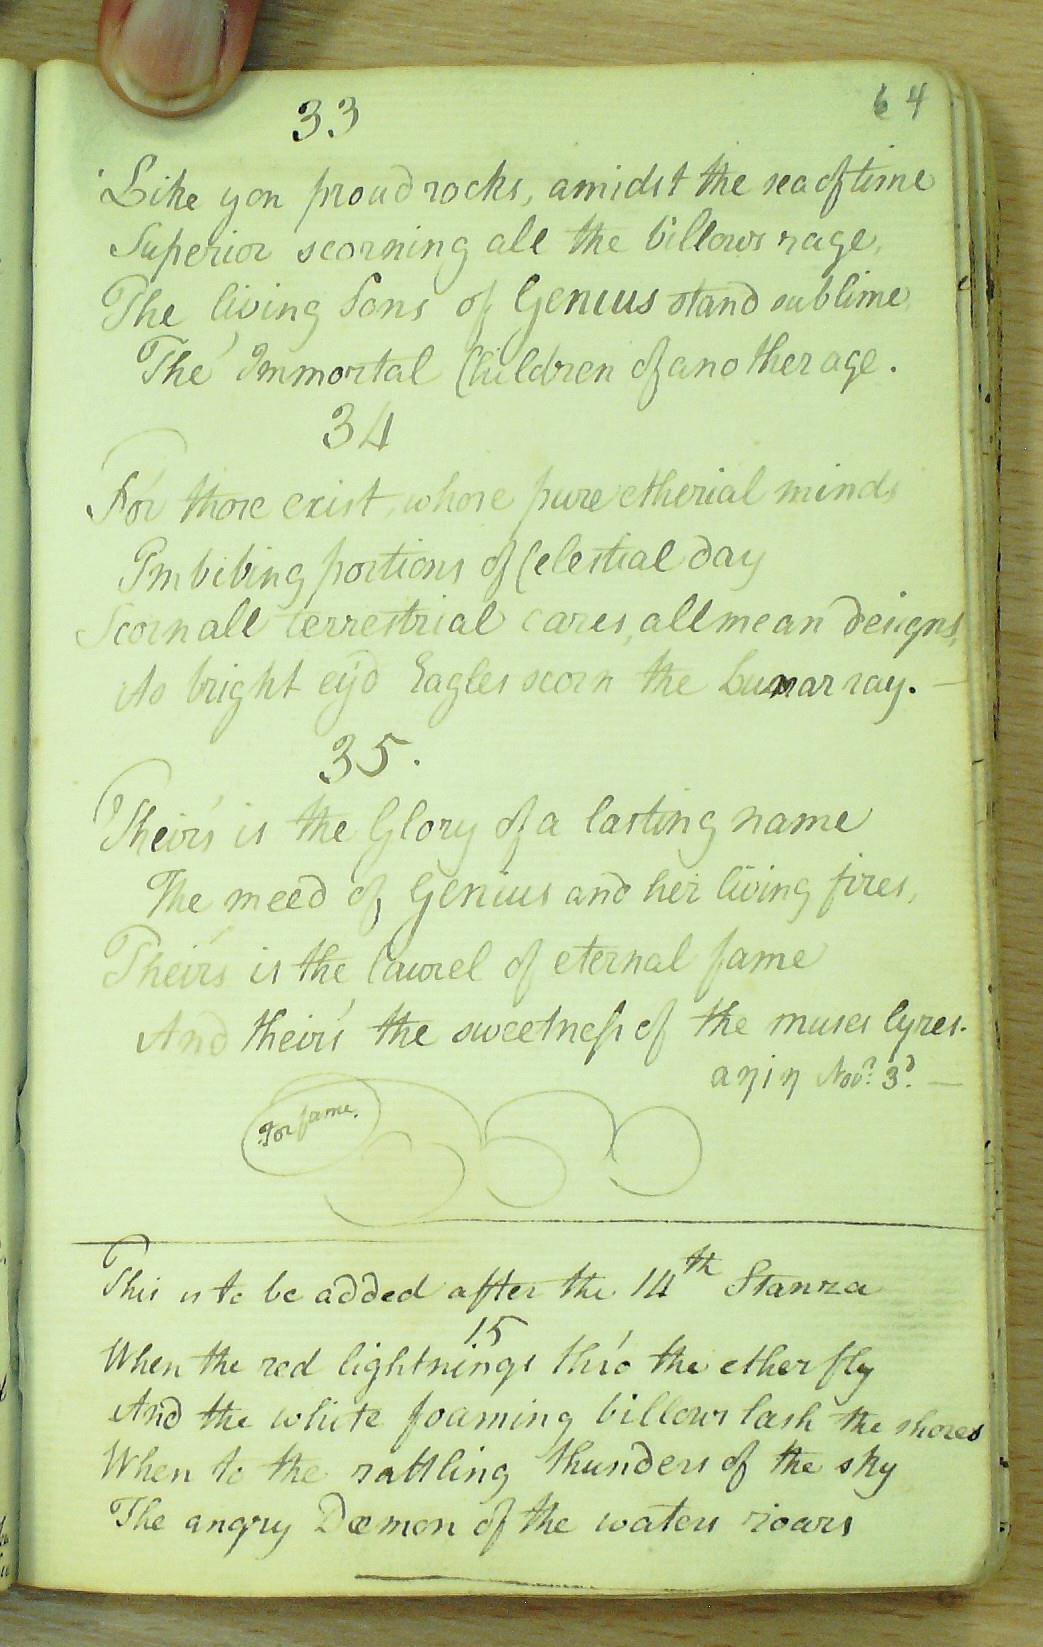 64
33
Like yon proud rocks, amidst the sea of time
Superior scorning all the billows rage,
The living Sons of Genius stand sublime
The' Immortal Children of another age.
34
For those exist, whose pure etherial minds
Imbibing portions of Celestial day
Scorn all terrestrial cares, all mean designs,
As bright ey'd Eagles scorn the Lunar ray. —
35.
Their's is the Glory of a lasting name
The meed of Genius and her living fires,
Their's is the laurel of eternal fame
And their's the sweetness of the muses lyres.
Novr. 3d. —
For fame.
This is to be added after the 14th Stanza
15
When the red lightnings thro' the ether fly
And the white foaming billows lash the shores
When to the rattling thunders of the sky
The angry Dæmon of the waters roars